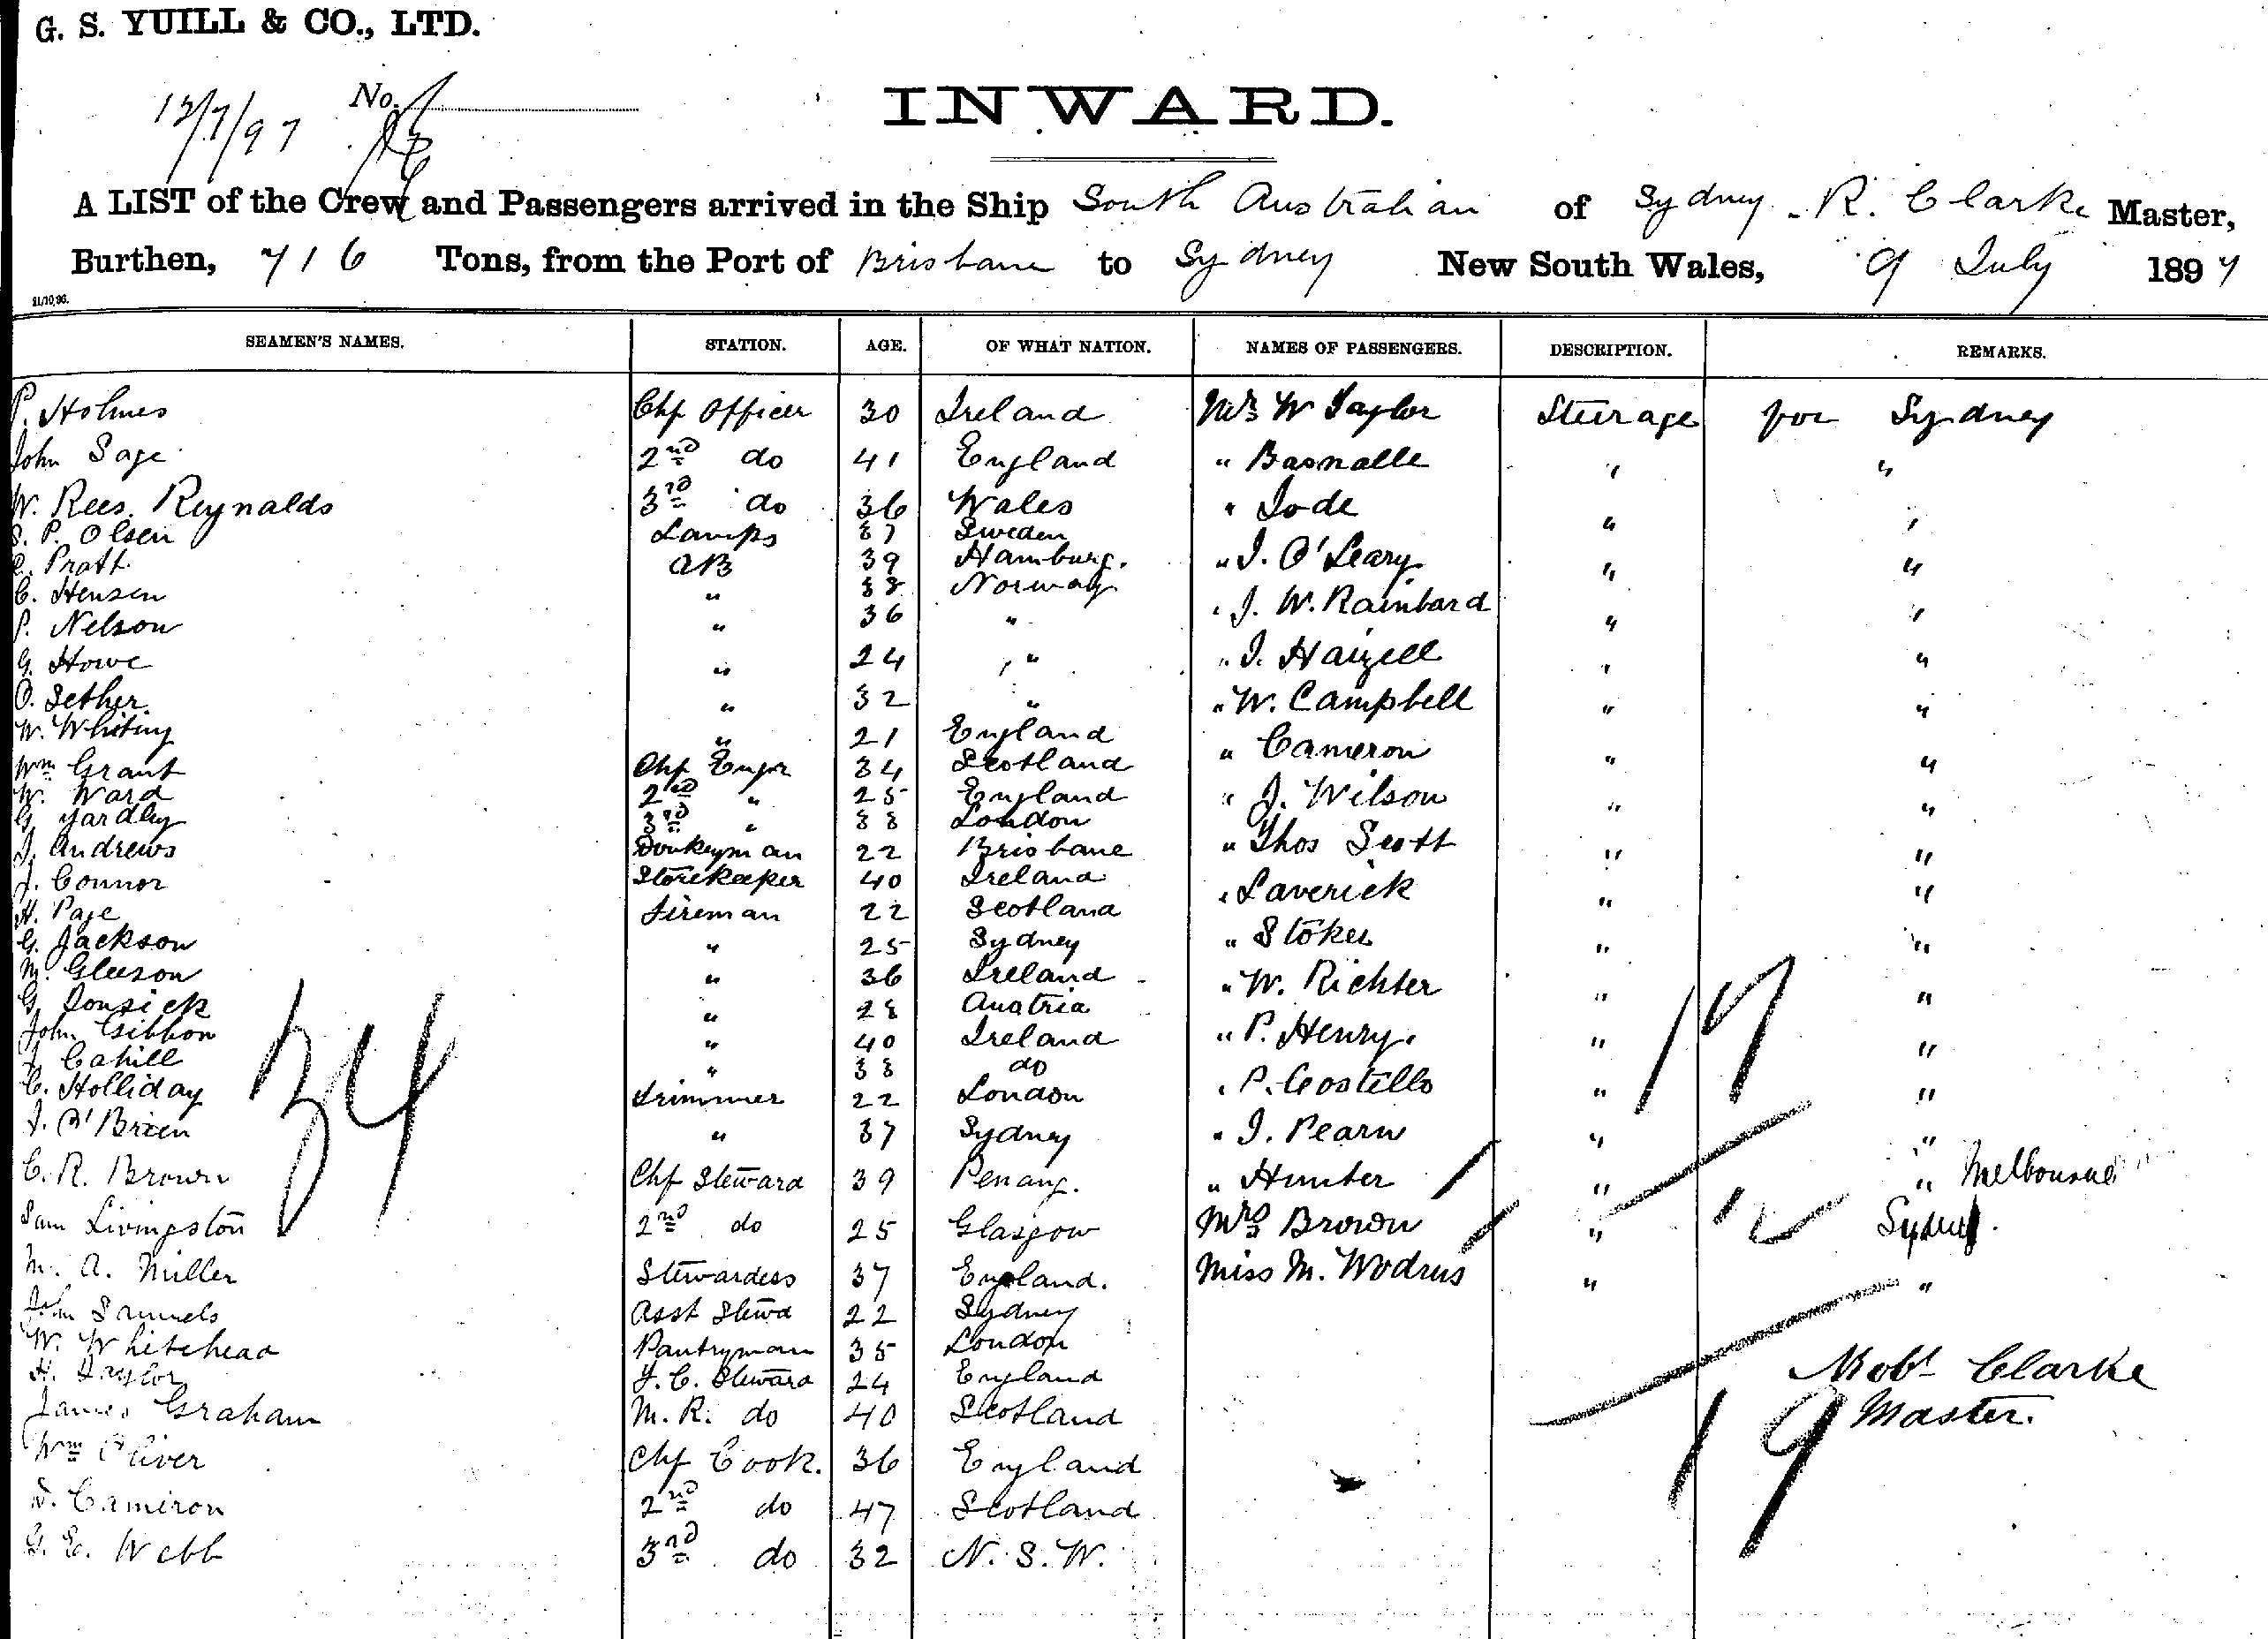 G. S. YUILL & CO., LTD.
12/7/97 No.
INWARD.
A LIST of the Crew and Passengers arrived in the Ship South Australian of Sydney R. Clarke Master,
Burthen, 716 Tons, from the Port of Brisbane to Sydney New South Wales, 9 July 1897
21/10/96.
SEAMEN'S NAMES. STATION. AGE. OF WHAT NATION. NAMES OF PASSENGERS. DESCRIPTION. REMARKS.
P. Holmes Chf Officer 30 Ireland Mrs W Taylor Steerage for Sydney
John Sage 2nd do 41 England " Basnalle " "
W. Rees. Reynalds 3rd do 36 Wales " Jode " "
S. P. Olsen Lamps 37 Sweden
C. Pratt AB 39 Hamburg. " J. O'Leary " "
C. Hensen " 38 Norway
P. Nelson " 36 " " J. W. Rainbard " "
G. Howe " 24 " " J. Haizell " "
O. Sether " 32 " " W. Campbell " "
W. Whiting " 21 England " Cameron " "
Wm Grant Chf Engr 34 Scotland
W. Ward 2nd " 25 England " J. Wilson " "
G. Yardley 3rd " 33 London
J. Andrews Donkeyman 22 Brisbane " Thos Scott " "
J. Connor Storekeeper 40 Ireland " Laverick " "
H. Page Fireman 22 Scotland
G. Jackson " 25 Sydney " Stoker " "
M. Gleeson " 36 Ireland " W. Richter " "
G. Jonsick " 28 Austria
John Gibbon " 40 Ireland " P. Henry. " "
J. Cahill " 33 do
C. Holliday Trimmer 22 London " P. Costello " "
J. O'Brien " 37 Sydney " J. Pearn " "
C. R. Brown Chf Steward 39 Penang. " Hunter " " Melbourne
Sam Livingston 2nd do 25 Glasgow Mrs Brown " Sydney.
M. A. Miller Stewardess 37 England. Miss M. Wodrus " "
John Samuels Asst Stewd 22 Sydney
W. Whitehead Pantryman 35 London
H. Taylor F. C. Steward 24 England
James Graham M. R. do 40 Scotland
Wm Oliver Chf Cook. 36 England
D. Cameron 2nd do 47 Scotland
G. E. Webb 3rd do 32 N. S. W.
34
17
12
Robt Clarke
Master.
19